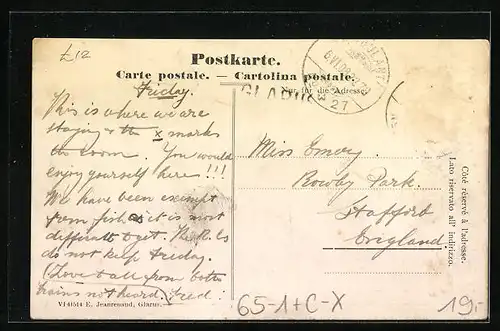 £12
Postkarte.
Carte postale. — Cartolina postale.
Nur für die Adresse.
GLARUS
6.VI.09
27
Friday.
This is where we are
staying & the x marks
the room. You would
enjoy yourself here!!!
We have been exempt
from fish as it is most
difficult to get. The R.Cs
do not keep Friday.
(Love to all from both
trains not heard. Fred.
Miss Emery.
Rowley Park.
Stafford
England.
Côté réservé à l'adresse.
Lato riservato all' indirizzo.
VI 40514 E. Jeanrenaud, Glarus.
65-1+C-X
19,-